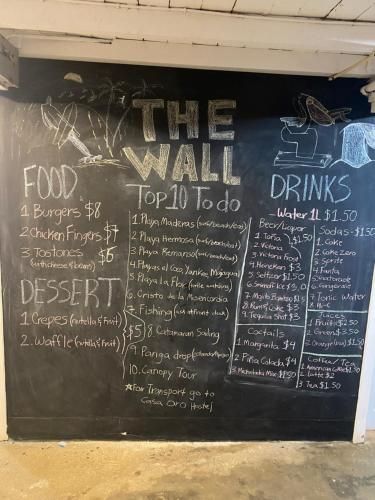 THE
WALL
FOOD
1 Burgers $8
2 Chicken Fingers $7
3 Tostones $5
(with cheese & beans)
DESSERT
1. Crepes (nutella & fruit)
2. Waffle (nutella & fruit)
$5
Top 10 To do
1. Playa Maderas (surf/beach/bar)
2. Playa Hermosa (surf/beach/bar)
3. Playa Remanso
4. Playas el Coco, Yankee, Majagual
5. Playa la Flor (turtle watching)
6. Cristo de la Misericordia
7. Fishing (ask at front desk)
8 Catamaran Sailing
9. Panga drop
10. Canopy Tour
☆ For Transport go to
Casa Oro Hostel
DRINKS
Water 1L $1.50
Beer/Liquor
1. Toña $1.50
2. Victoria
3. Victoria Frost
4. Heineken $3
5. Seltzer $1.50
6. Smirnoff Ice $3
7. Mojito Bamboo $1.5
8. Rum & Coke $3
9. Tequila Shot $3
Coctails
1. Margarita $4
2. Piña Colada $4
3. Michelada Mix $1.50
Sodas - $1.50
1. Coke
2. Coke Zero
3. Sprite
4. Fanta
6. Gingerale
7. Tonic Water
8. Hi-C
Juices
1 Fruit $2.50
2. Green $3.50
3. Orange $1.50
Coffee/Tea
1. American Coffee $1.50
2. Latte $2
3 Tea $1.50